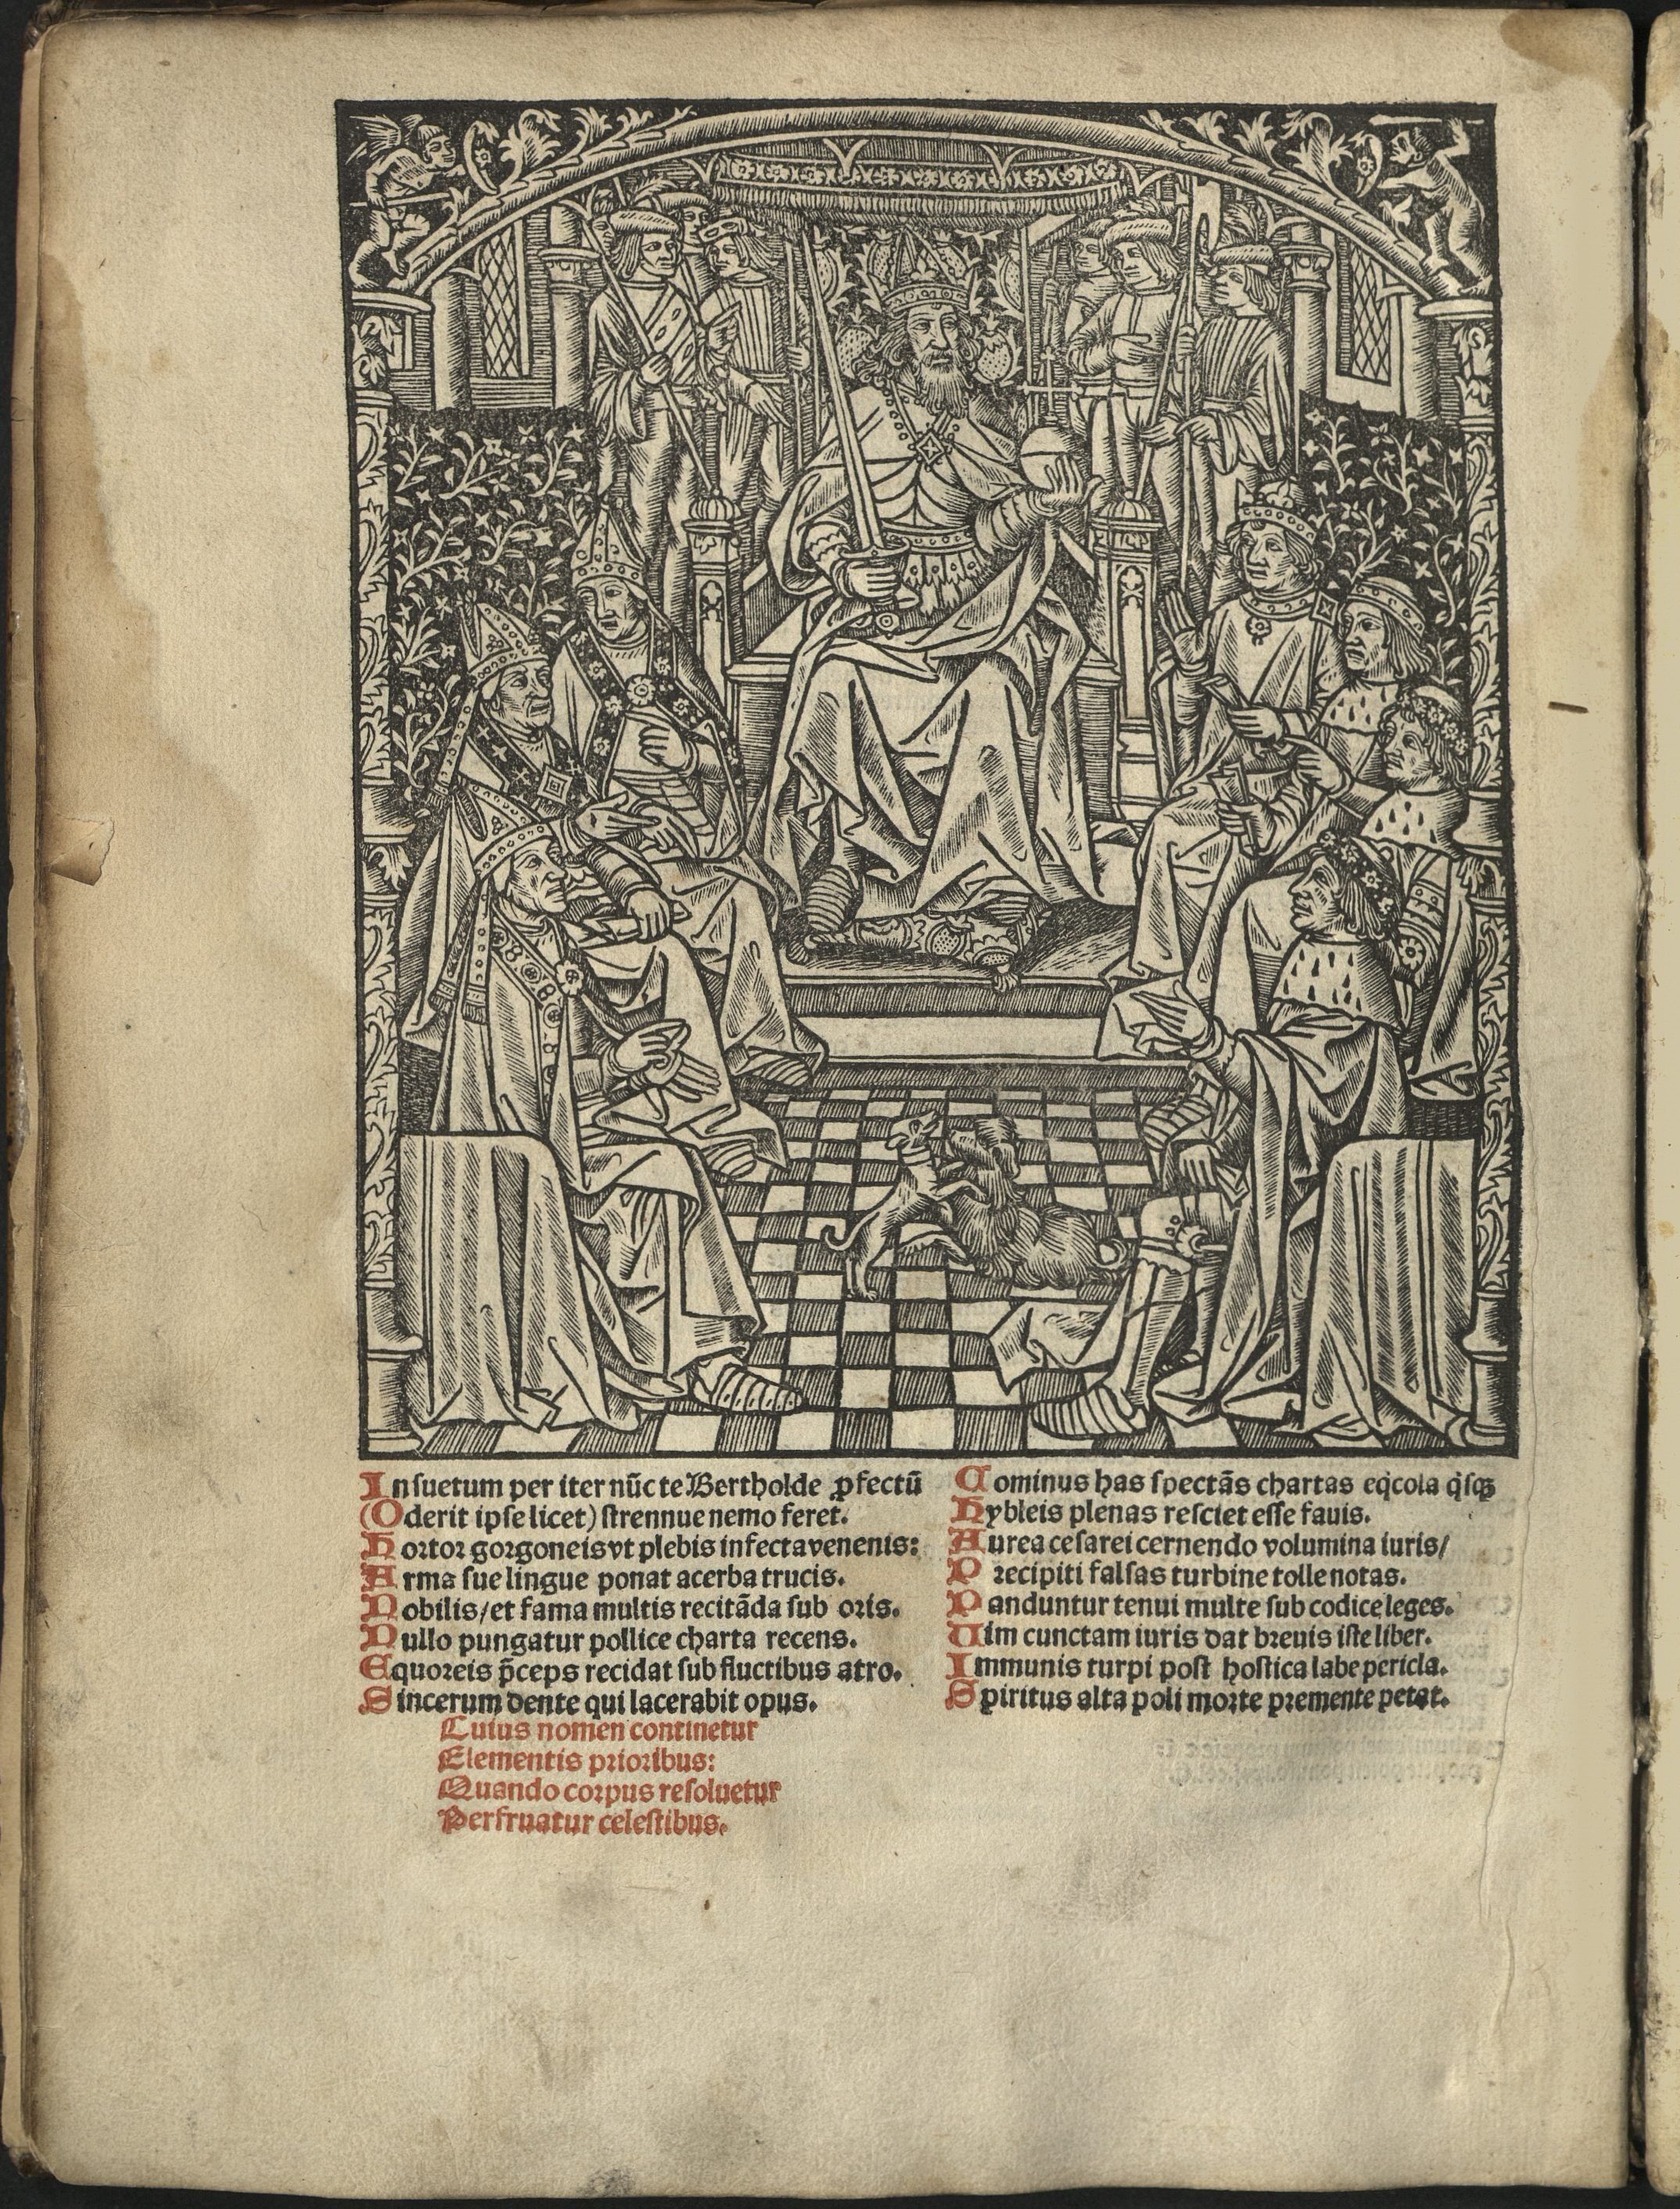 Insuetum per iter nūc te Bertholde ꝓfectū
(Oderit ipse licet) strennue nemo feret.
Hortor gorgoneis vt plebis infecta venenis:
Arma sue lingue ponat acerba trucis.
Nobilis/et fama multis recitāda sub oris.
Nullo pungatur pollice charta recens.
Equoreis p̄ceps recidat sub fluctibus atro.
Sincerum dente qui lacerabit opus.
Cuius nomen continetur
Elementis prioribus:
Quando corpus resoluetur
Perfruatur celestibus.
Cominus has spectās chartas eqͥcola qͥsqꝫ
Hybleis plenas resciet esse fauis.
Aurea cesarei cernendo volumina iuris/
Precipiti falsas turbine tolle notas.
Panduntur tenui multe sub codice leges.
Uim cunctam iuris dat breuis iste liber.
Immunis turpi post hostica labe pericla.
Spiritus alta poli morte premente petat.